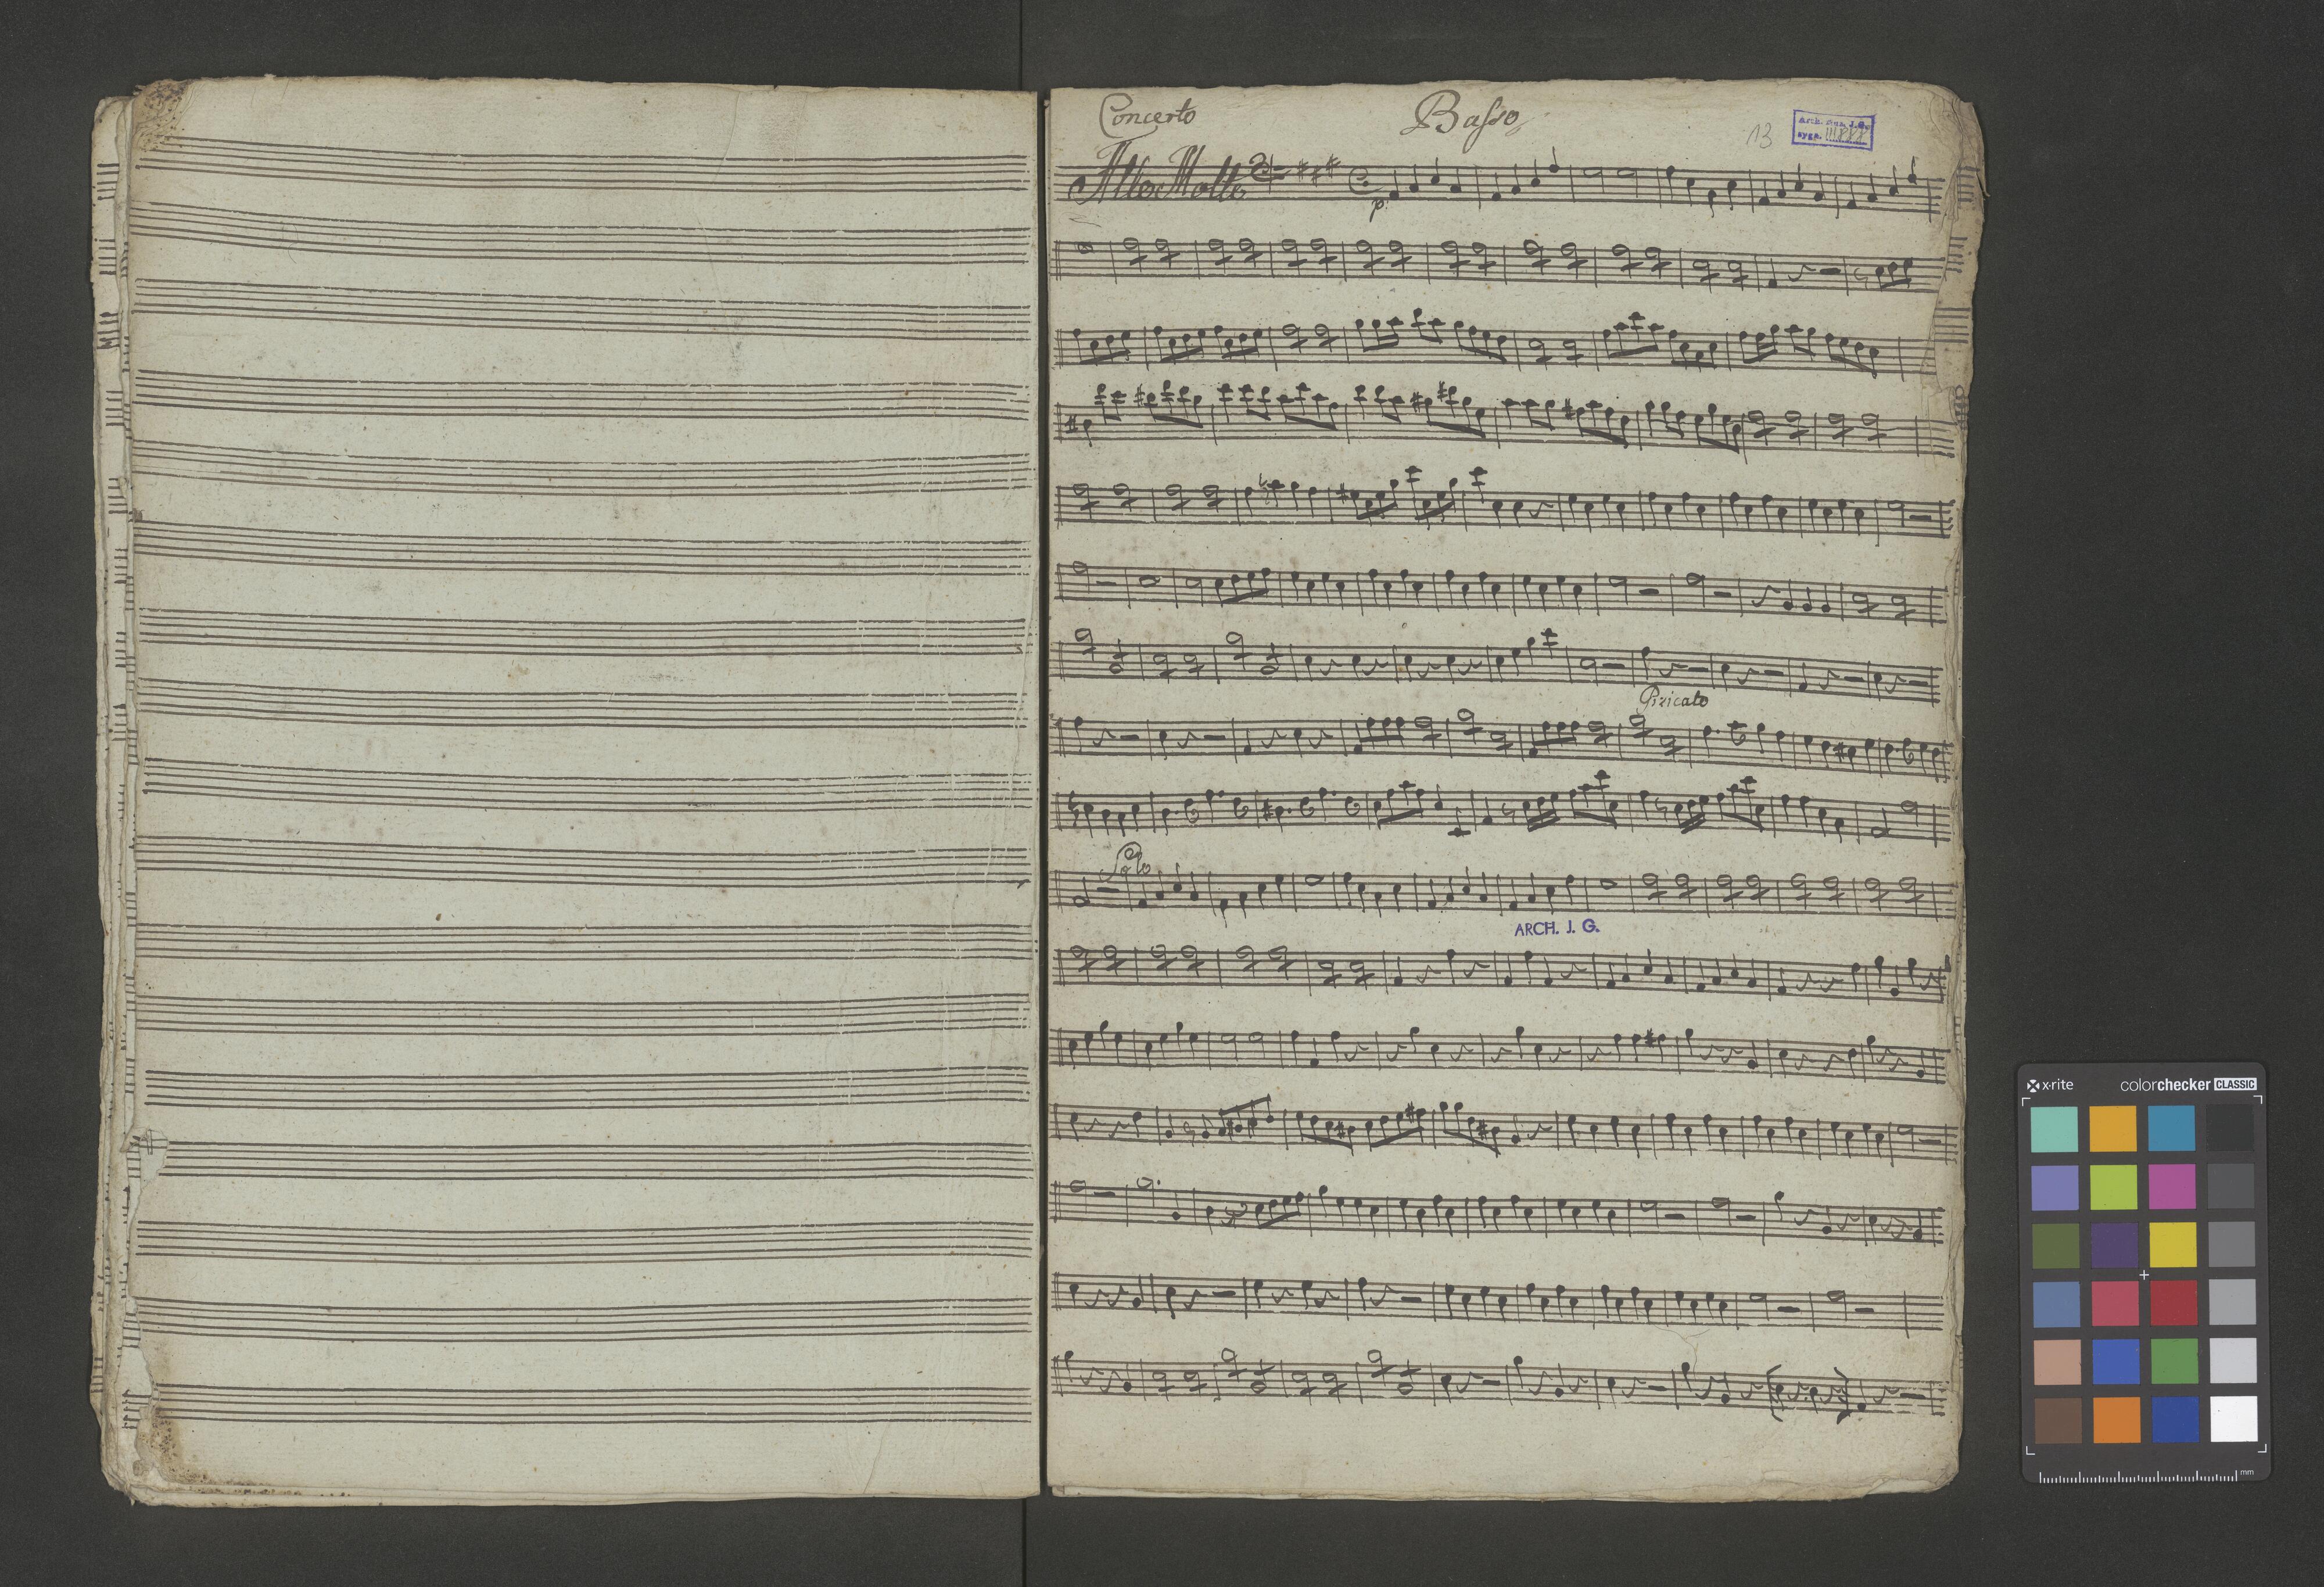 Concerto Baſso
13
Arch. Mus. J. G.
sygn.
Allo Molto
p.
Pizicato
Solo
ARCH. J. G.
x·rite colorchecker CLASSIC
mm